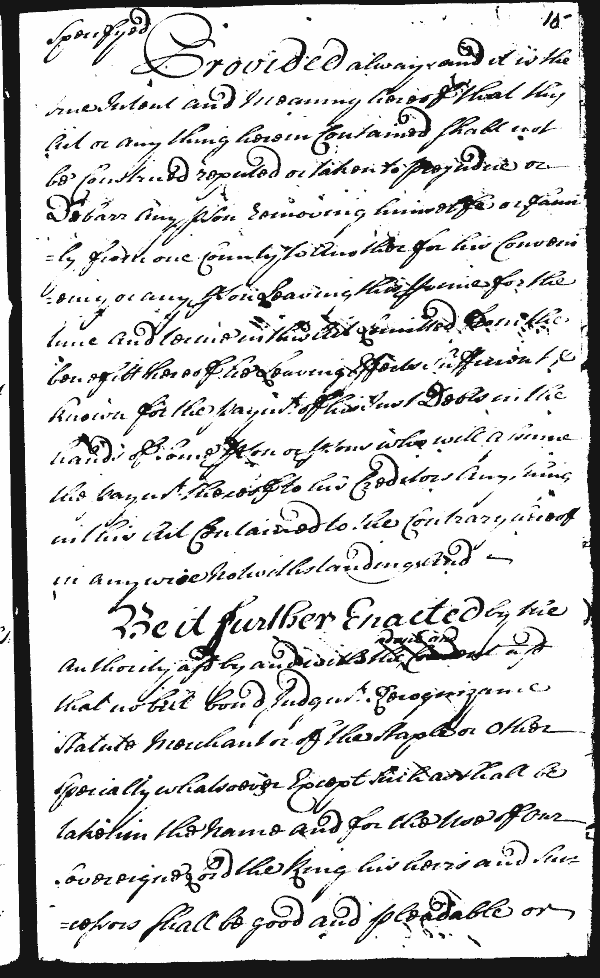 15
Specifyed
Provided always and it is the
true Intent and Meaning hereof that this
Act or any thing herein Contained Shall not
be Construed reputed or taken to prejudice or
Debarr Any pson removing himselfe or fami
=ly from one County to Another for his Conveni
=ency or any pson Leaving this for the
time and terme in this Act Limitted from the
benefitt thereof he Leaving Effects Sufficient &
known for the paymt. of his Just Debts in the
hands of some pson or psons who will assume
the paymt. thereof to his Creditors Any thing
in this Act Contained to the Contrary hereof
in any wise Notwithstanding And
Be it further Enacted by the
Authority afsd by and with the Consent afsd
that no bill bond Judgmt. Recognizance
Statute Merchant or of the Staple or Other
Specialty whatsoever Except Such as shall be
taken in the Name and for the Use of Our
Sovereigne Lord the King his heirs and Suc=
=cessors Shall be good and pleadable or